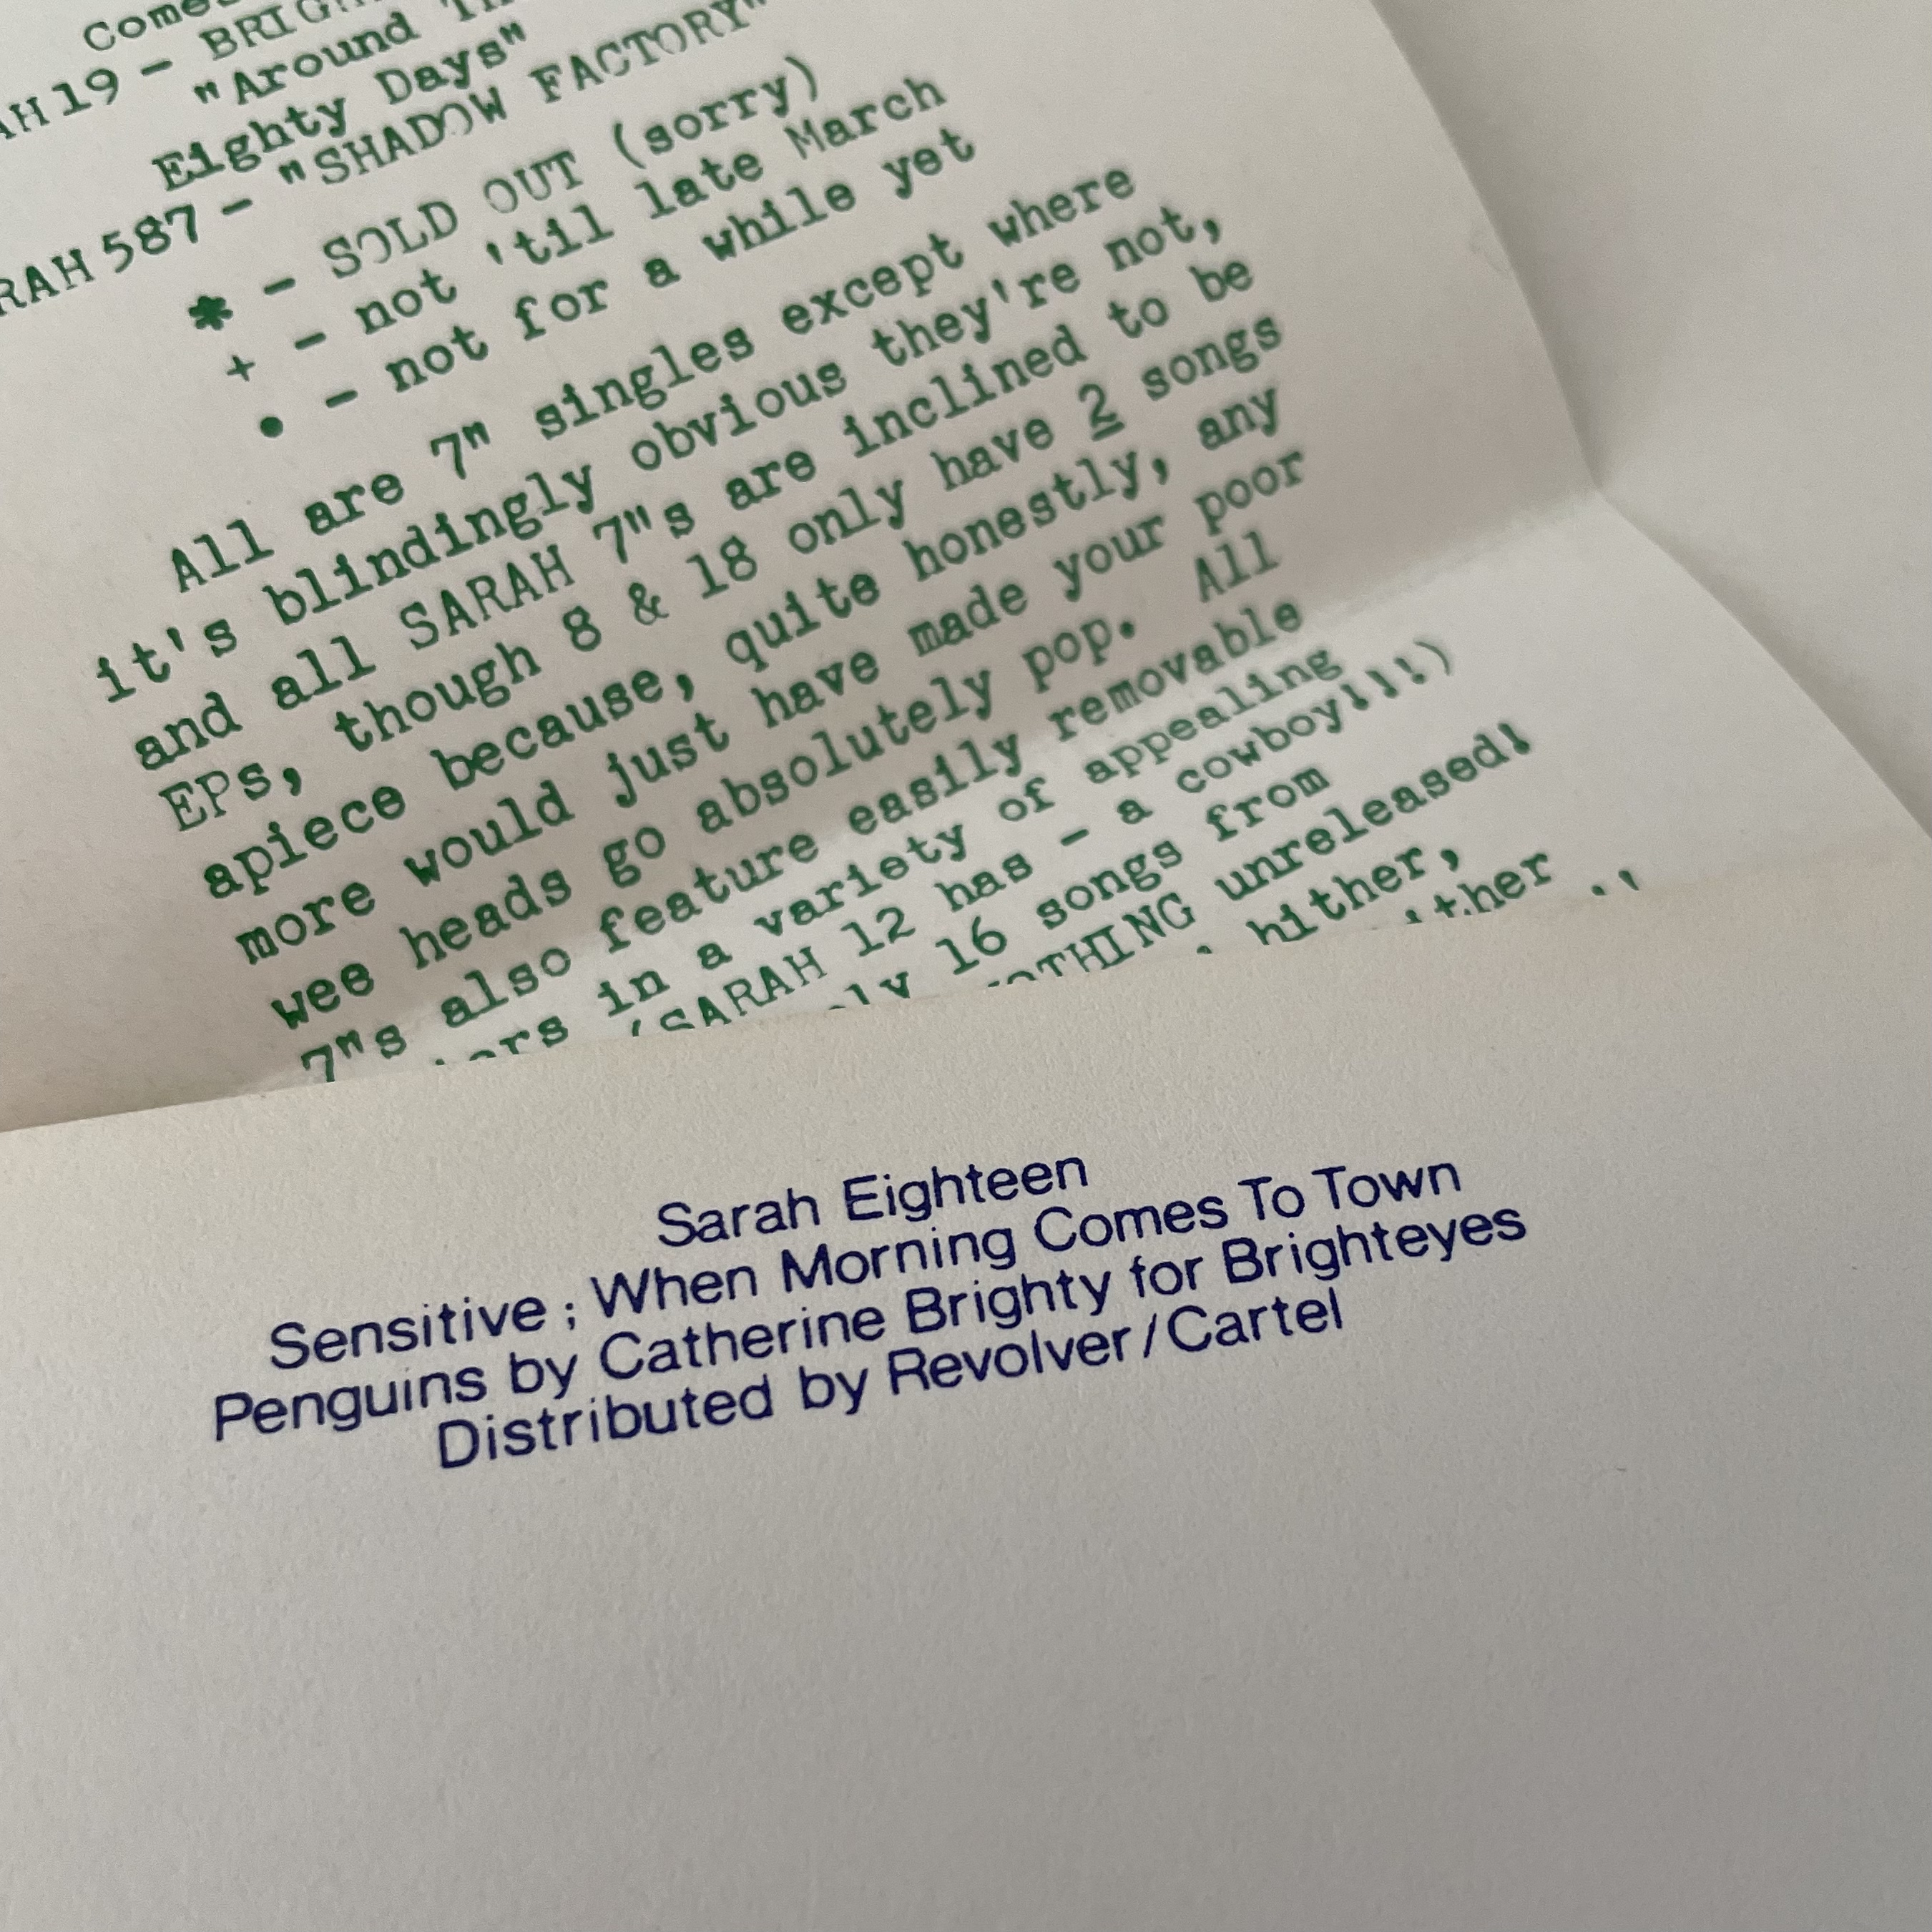 19 - 
"Around
Eighty Days"
587 - "SHADOW FACTORY"
* - SOLD OUT (sorry)
+ - not 'til late March
• - not for a while yet
All are 7" singles except where
it's blindingly obvious they're not,
and all SARAH 7"s are inclined to be
EPs, though 8 & 18 only have 2 songs
apiece because, quite honestly, any
more would just have made your poor
wee heads go absolutely pop. All
7"s also feature easily removable
in a variety of appealing
(SARAH 12 has - a cowboy!!!)
16 songs from
NOTHING unreleased!
hither,
Sarah Eighteen
Sensitive ; When Morning Comes To Town
Penguins by Catherine Brighty for Brighteyes
Distributed by Revolver/Cartel